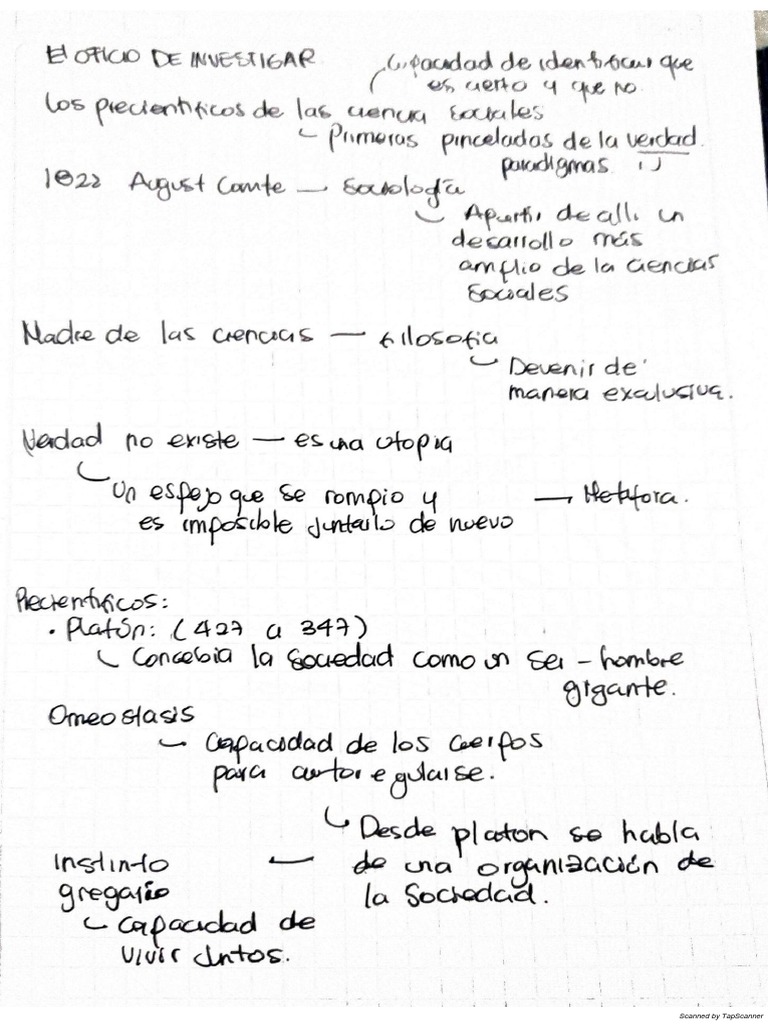 El OFICIO DE INVESTIGAR
Capacidad de identificar que
es cierto y que no
Los precientificos de las ciencia sociales
Primeras pinceladas de la verdad.
paradigmas
1822 August Comte — Sociología
Apartir de alli un
desarrollo más
amplio de la ciencias
Sociales
Madre de las ciencias — filosofia
Devenir de
manera exclusiva.
Verdad no existe — es una utopia
Un espejo que se rompio y → Metafora.
es imposible juntarlo de nuevo
Precientificos:
• Platón: (427 a 347)
Concebia la sociedad como un ser - hombre
gigante.
Omeostasis
Capacidad de los cuerpos
para autoregularse.
Desde platon se habla
de una organización de
la Sociedad.
Instinto —
gregario
Capacidad de
vivir Juntos.
Scanned by TapScanner